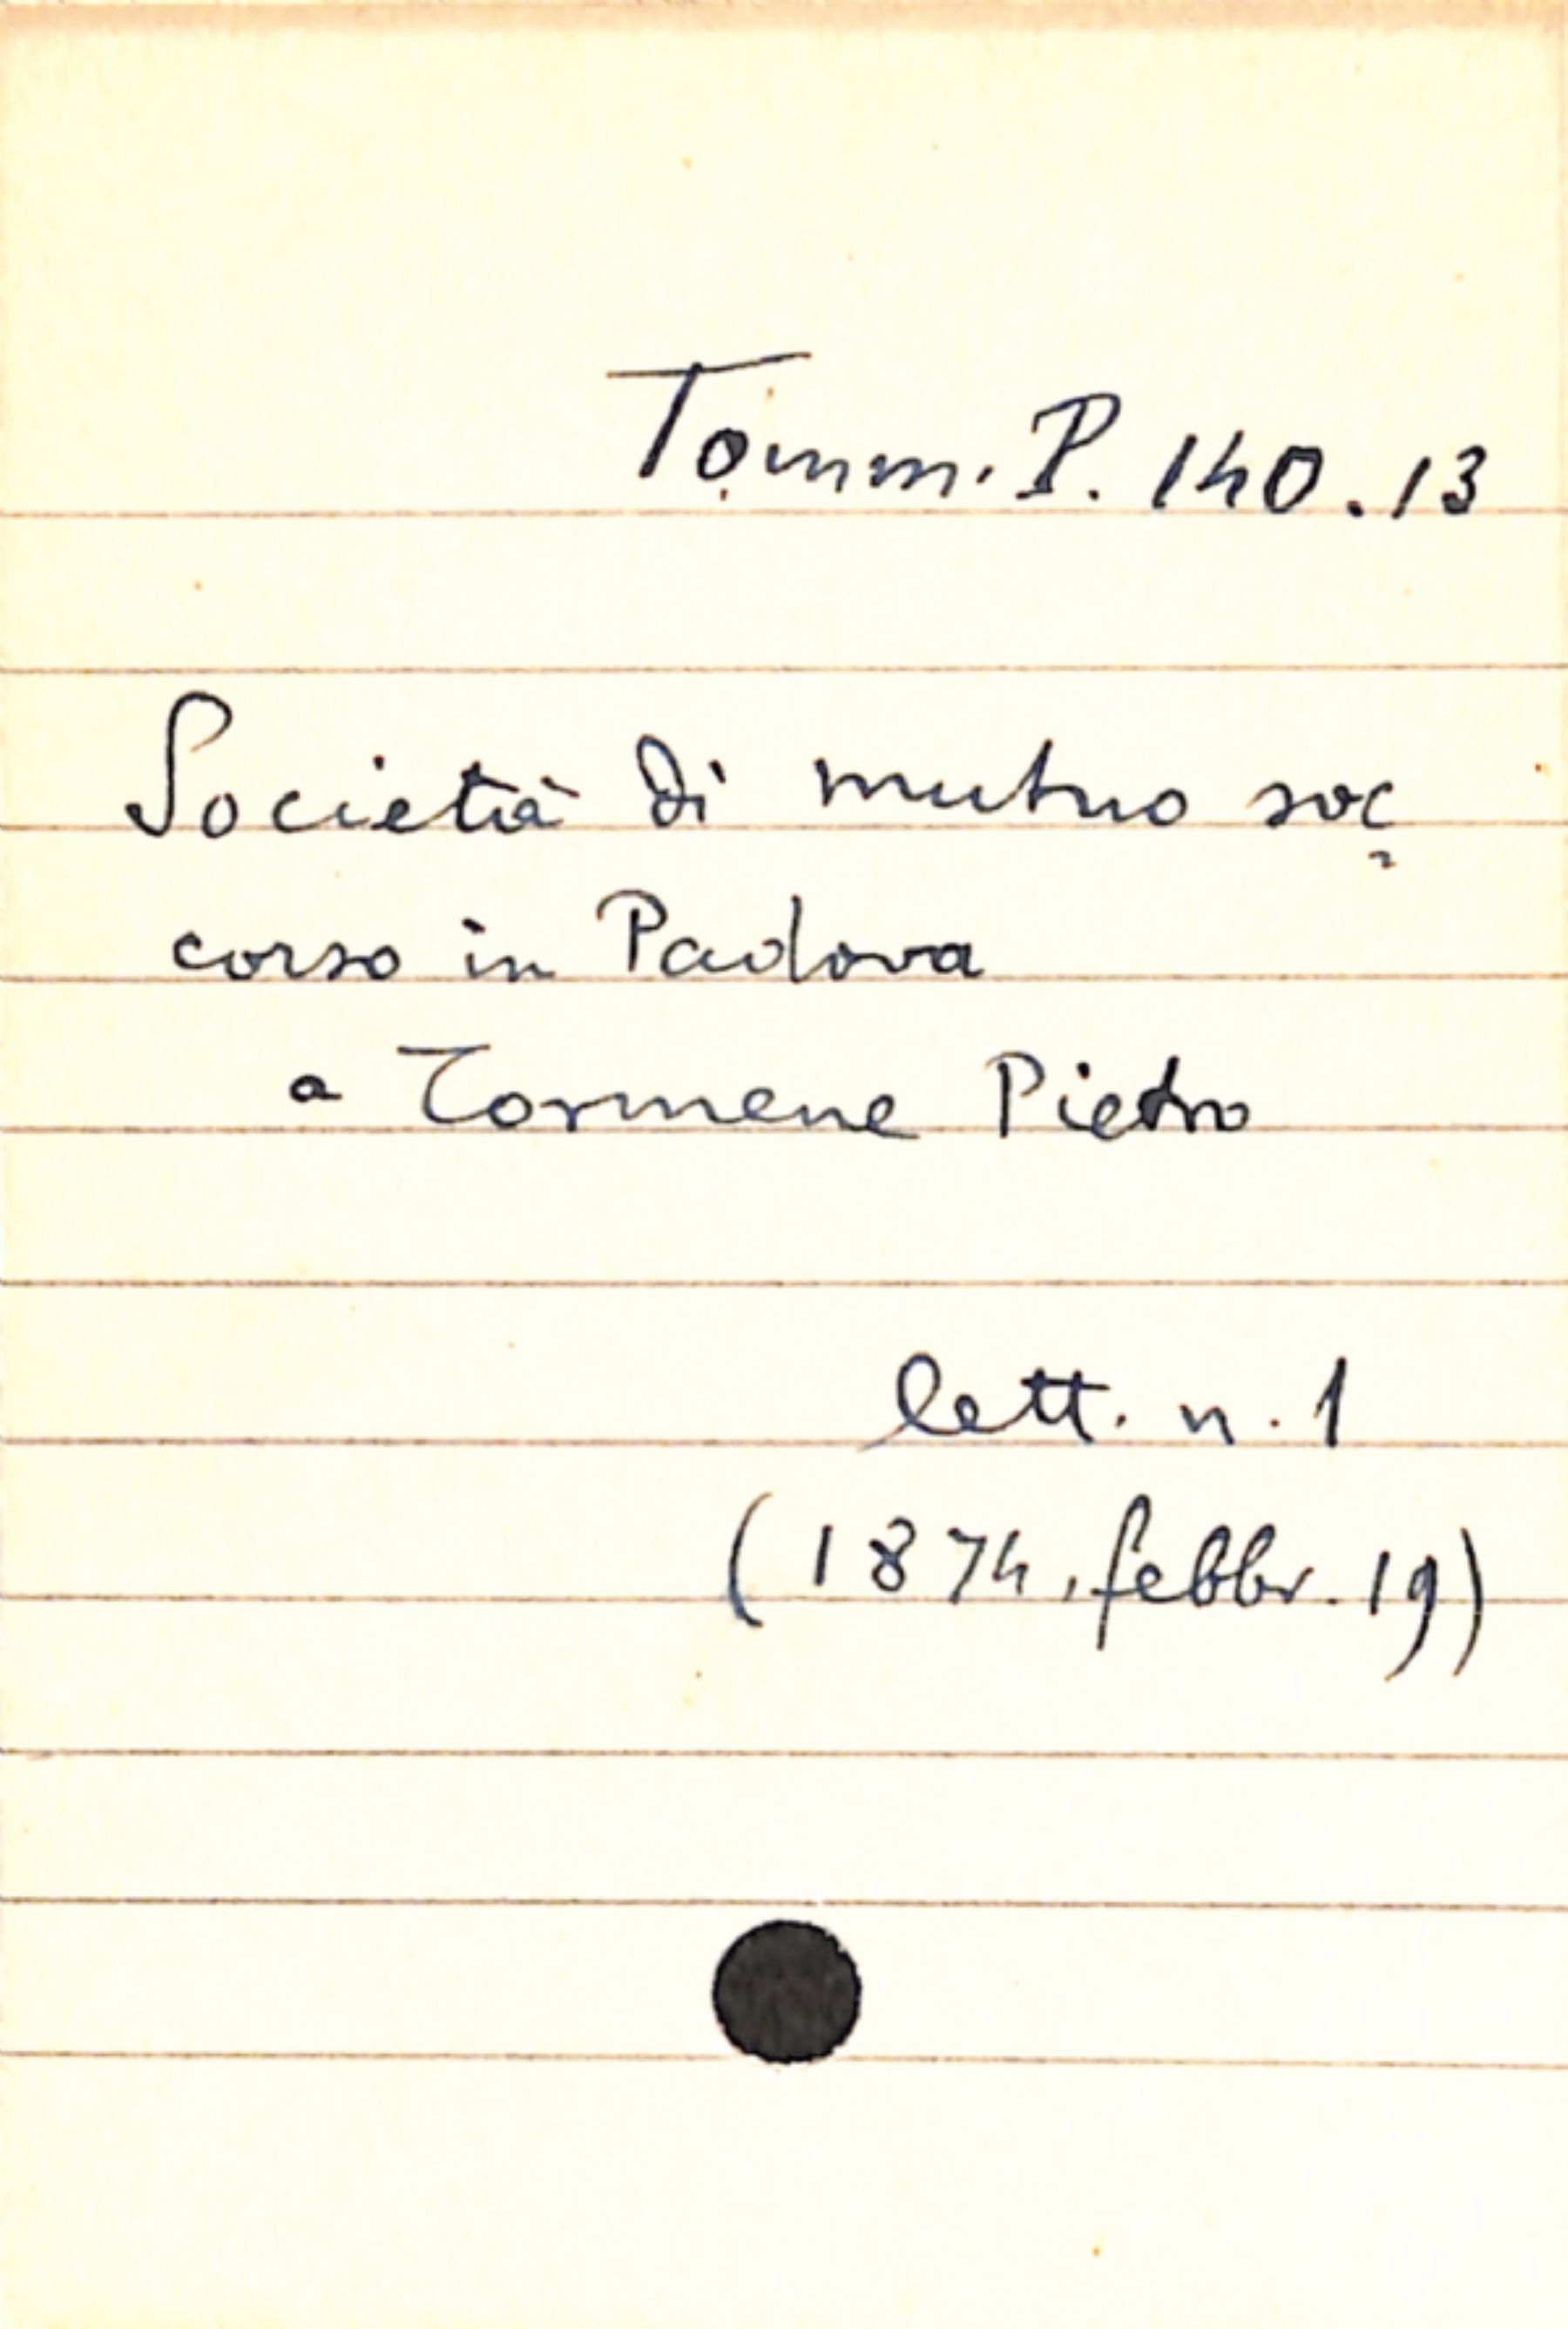 Tomm. P. 140.13
Società di mutuo soc
corso in Padova
a Tormene Pietro
lett. n. 1
(1874, febbr. 19)